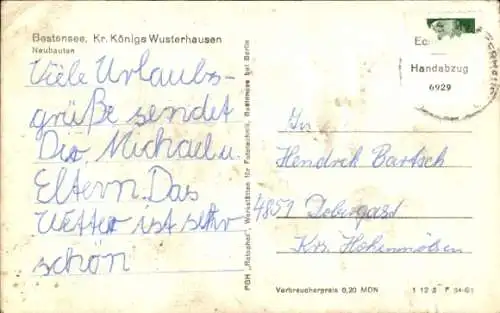 Bestensee, Kr. Königs Wusterhausen
Neubauten
Viele Urlaubs-
grüße sendet
Dir, Michael u.
Eltern. Das
Wetter ist sehr
schön
PGH „Rotophot", Werkstätten für Fototechnik, Bestensee bei Berlin
Handabzug
6929
Hendrik Bartsch
4851 Dobergast
Krs. Hohenmölsen
Verbraucherpreis 0,20 MDN
1 12 2